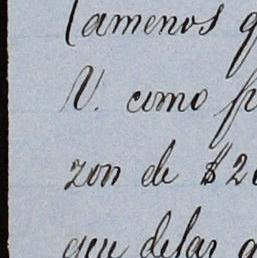 (amenos q
V. como p
zon de $20
que dejar a